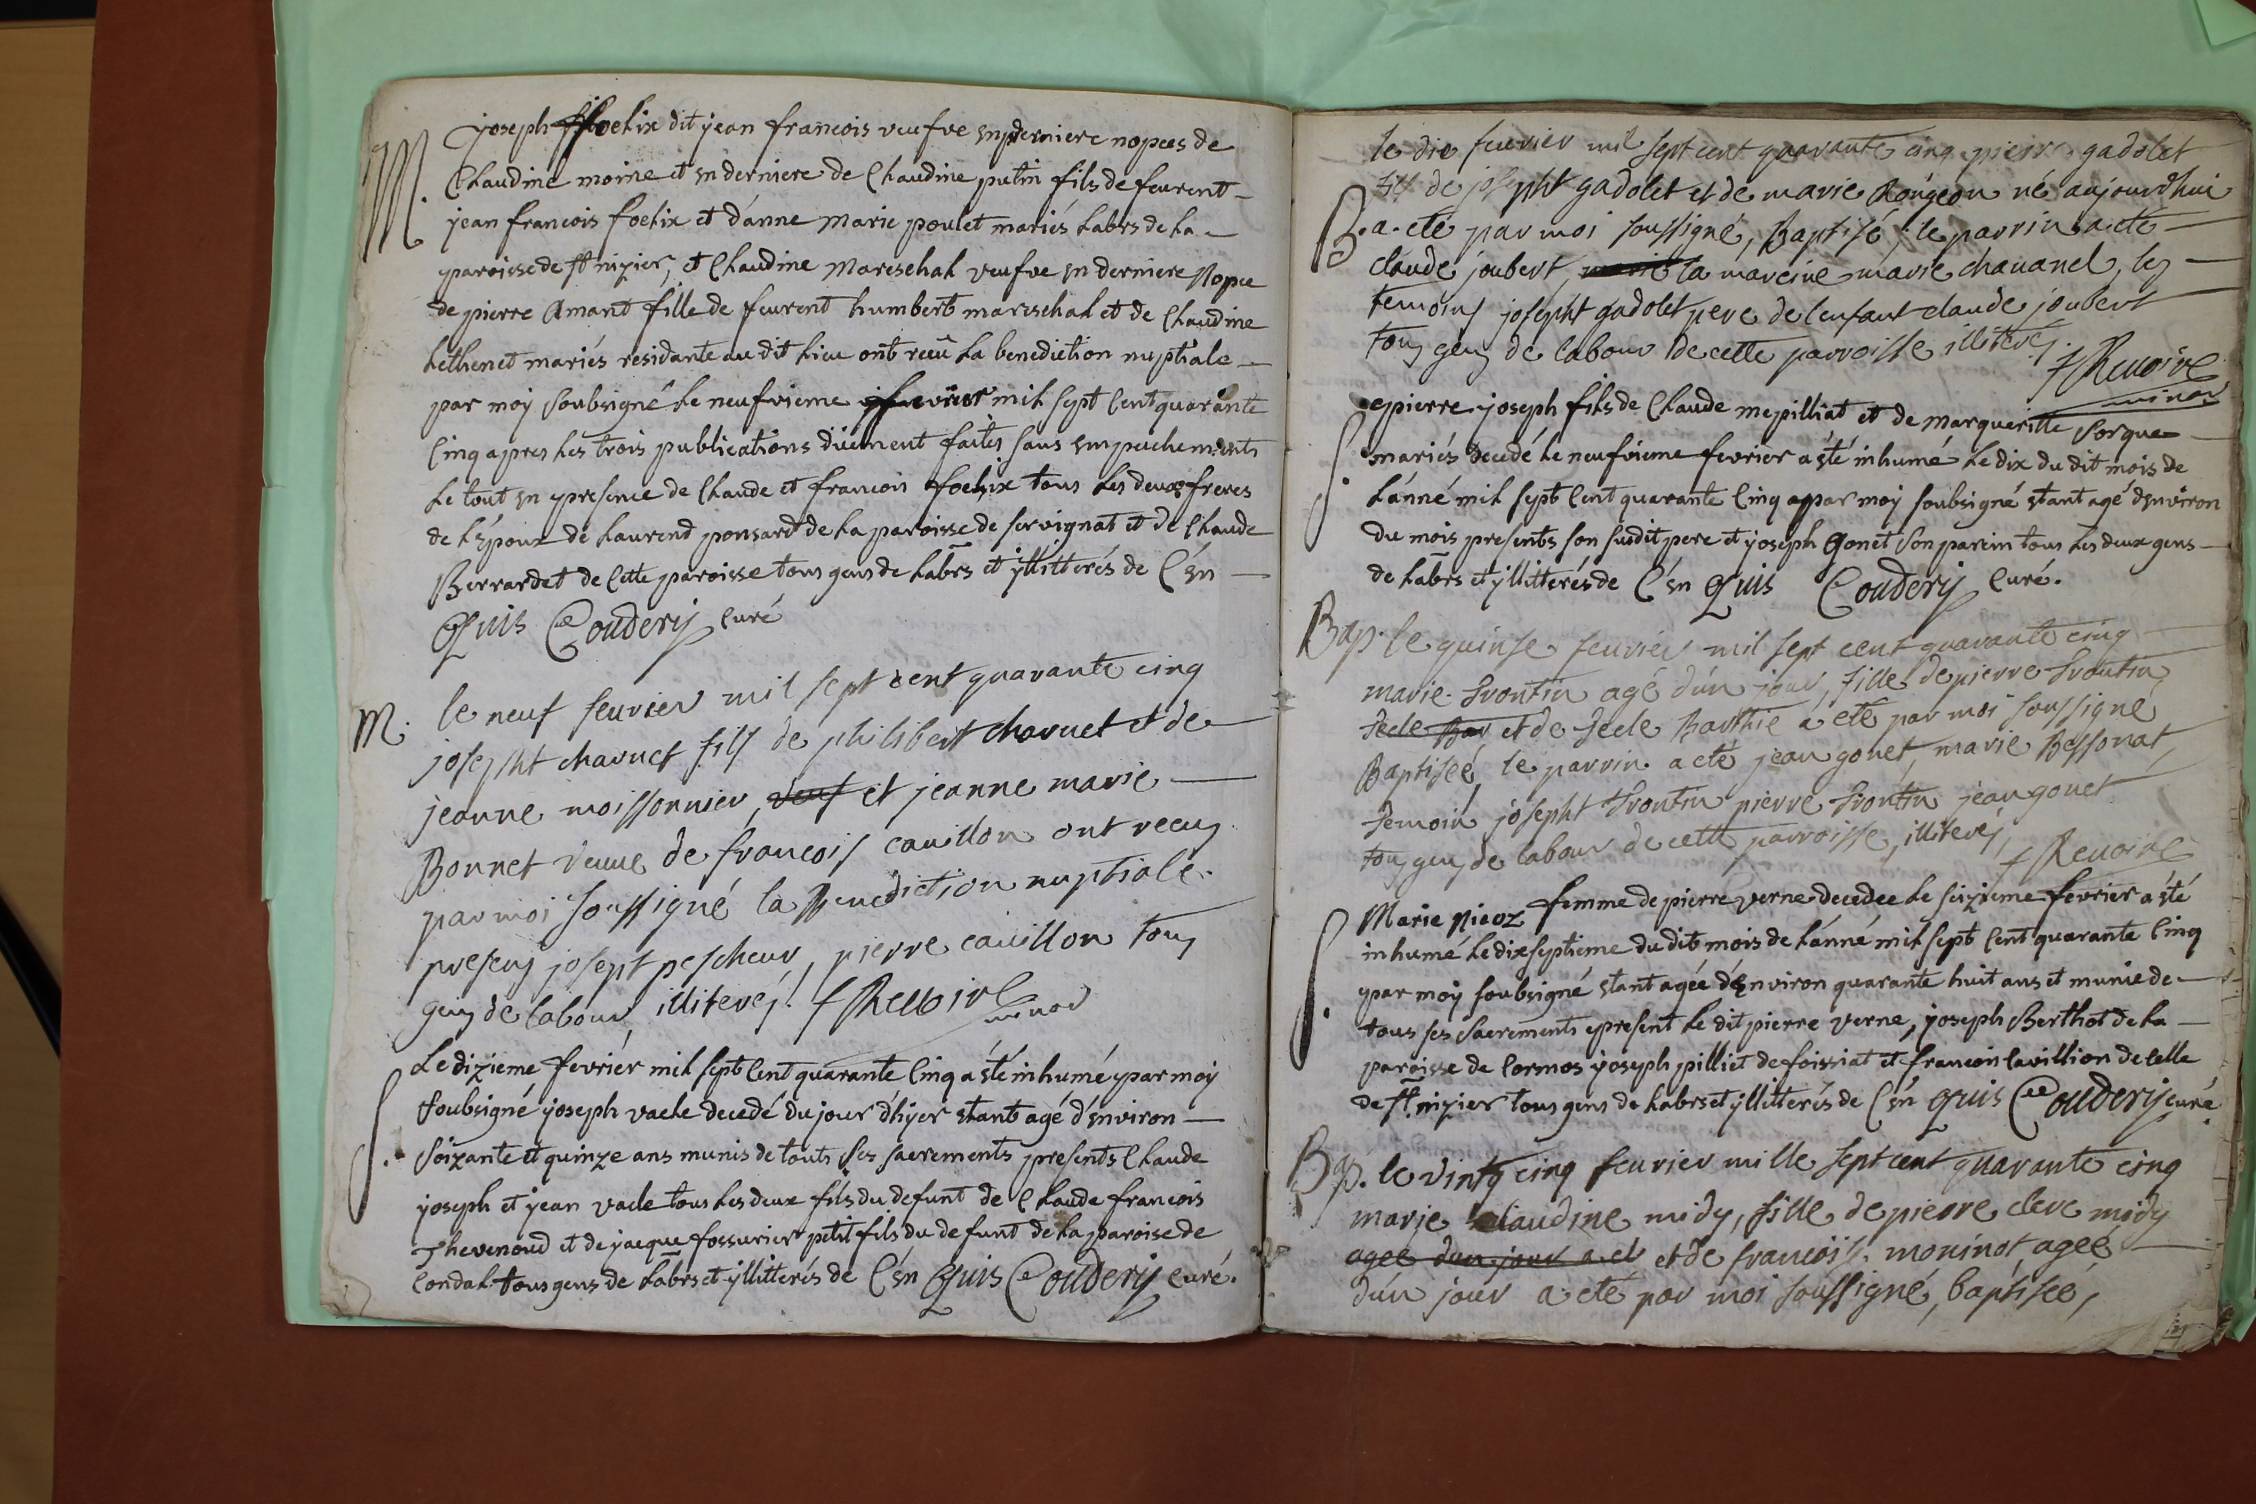 M. joseph ffoelix dit jean francois veufve en derniere nopces de
Claudine moine et en derniere de Claudine putin fils de feurent
jean francois foelix et d'anne Marie poulet mariés habrs de la
paroisse de st nizier, et Claudine Mareschal veufve en derniere Nopce
de pierre Amant fille de feurent humbert mareschal et de Claudine
Lethenet mariés residante au dit lieu ont reeü La benediction nuptiale
par moÿ soubsigné le neufvieme fevrier mil sept Cent quarante
Cinq apres les trois publications düement faites sans empechements
Le tout en presence de Claude et francois foelix tous les deux freres
de l'époux de Laurend ponsard de la paroisse de servignat et de Claude
Berrardet de Cette paroisse tous gens de Labrs et ÿllitterés de C'en
Quis Couderij Curé
M. le neuf feurier mil sept cent quarante cinq
josepht charuet fils de philibert charuet et de
jeanne moissonnier, veuf et jeanne marie
Bonnet veuue de francois cauillon ont recus
par moi soussigné la Benediction nuptiale.
presens josept pescheur, pierre cauillon tous
gens de labour illiterés. f Reuoire
minor
S. Le dizieme fevriér mil sept Cent quarante Cinq a été inhumé par moÿ
soubsigné joseph vacle decedé du jour d'hÿer étant agé d'environ
soizante et quinze ans munis de touts ses sacrements presents Claude
joseph et jean vacle tous les deux fils du defunt de Claude francois
Thevenoud et de jacque fossurier petit fils du defunt de la paroise de
Condal tous gens de Labrs et ÿllitterés de C'en Quis Couderij curé.
le dix feurier mil sept cent quarante cinq pierre gadolet
fils de josepht gadolet et de marie Rougeon né aujourdhui
B. a été par moi soussigné, Baptisé, le parrin a été
claude joubert, marie la mareine marie chauanel, les
temoins josepht gadolet pere de lenfant claude joubert
tous gens de labour de cette parroisse illiterés.
f Reuoire
minor
pierre joseph fils de Claude mepilliat et de margueritte sorque
S. mariés decedé le neufvieme fevrier a été inhumé Le dix du dit mois de
L'anné mil sept Cent quarante Cinq par moÿ soubsigné étant agé d'environ
du mois presents son susdit pere et joseph Gonet son parein tous les deux gens
de Labrs et ÿllitterés de C'en Quis Couderij Curé.
Bap. le quinse feurier mil sept cent quarante cinq
marie frontin agé d'un jour, fille de pierre frontin
fecle Bar et de fecle Barthie a été par moi soussigné
Baptiseé, le parrin a été jean gonet, marie Bessonat,
temoin josepht frontin pierre frontin jean gonet
tous gens de labour de cette parroisse, illiterés,
f Reuoire
S. Marie nieoz femme de pierre verne decedee Le seizieme fevrier a été
inhumé Le dixseptieme du dit mois de L'anné mil sept Cent quarante Cinq
par moÿ soubsigné étant agée d'environ quarante huit ans et munie de
tous ses sacrements present Le dit pierre verne, joseph Berthot de La
paroisse de Cormos joseph pilliet de foissiat et francois Cavillion de Celle
de st nizier tous gens de Labrs et ÿllitterés de C'en Quis Couderij curé
Bap. le vintg cinq feurier mille sept cent quarante cinq
marie claudine midy, fille de pierre clere midy
agee dun jour a et et de francoise moninot agee
d'un jour a été par moi soussigné, baptiseé,